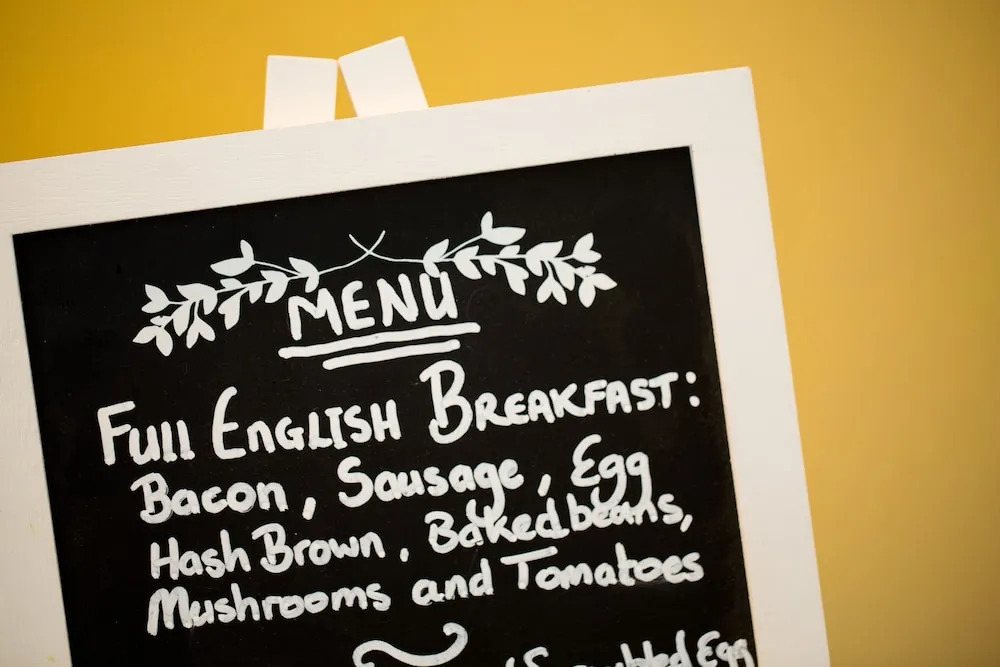 MENU
Full English Breakfast:
Bacon, Sausage, Egg
Hash Brown, Baked beans,
Mushrooms and Tomatoes
Egg